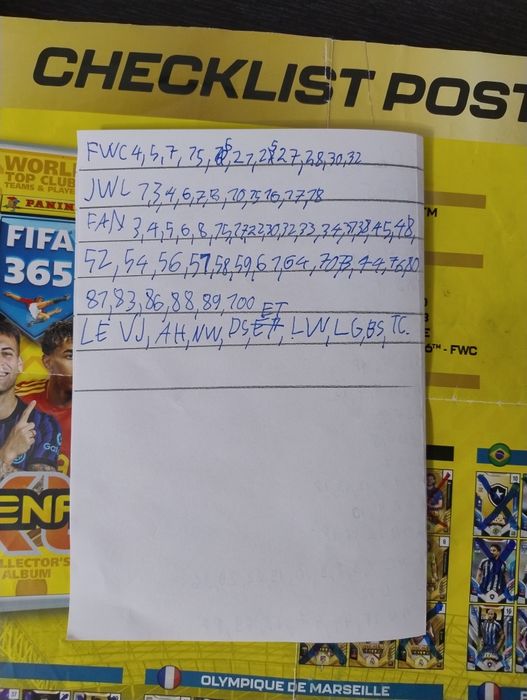 CHECKLIST POST
WORL
TOP CLUB
TEAMS & PLAYE
PANIN
FIFA
365
FWC 4, 5, 7, 15, 21, 27, 28, 30, 32
JWL 1, 3, 4, 6, 7, 8, 10, 15, 16, 17, 18
FAN 3, 4, 5, 6, 8, 15, 21, 22, 30, 32, 33, 34, 37, 38, 45, 48,
52, 54, 56, 57, 58, 59, 61, 64, 70, 73, 74, 76, 80
81, 83, 86, 88, 89, 100
ET
LE VJ, AH, NW, DS, LW, LG, BS, TC.
TM
6TH - FWC
ENA
LLECTOR'S
ALBUM
OLYMPIQUE DE MARSEILLE